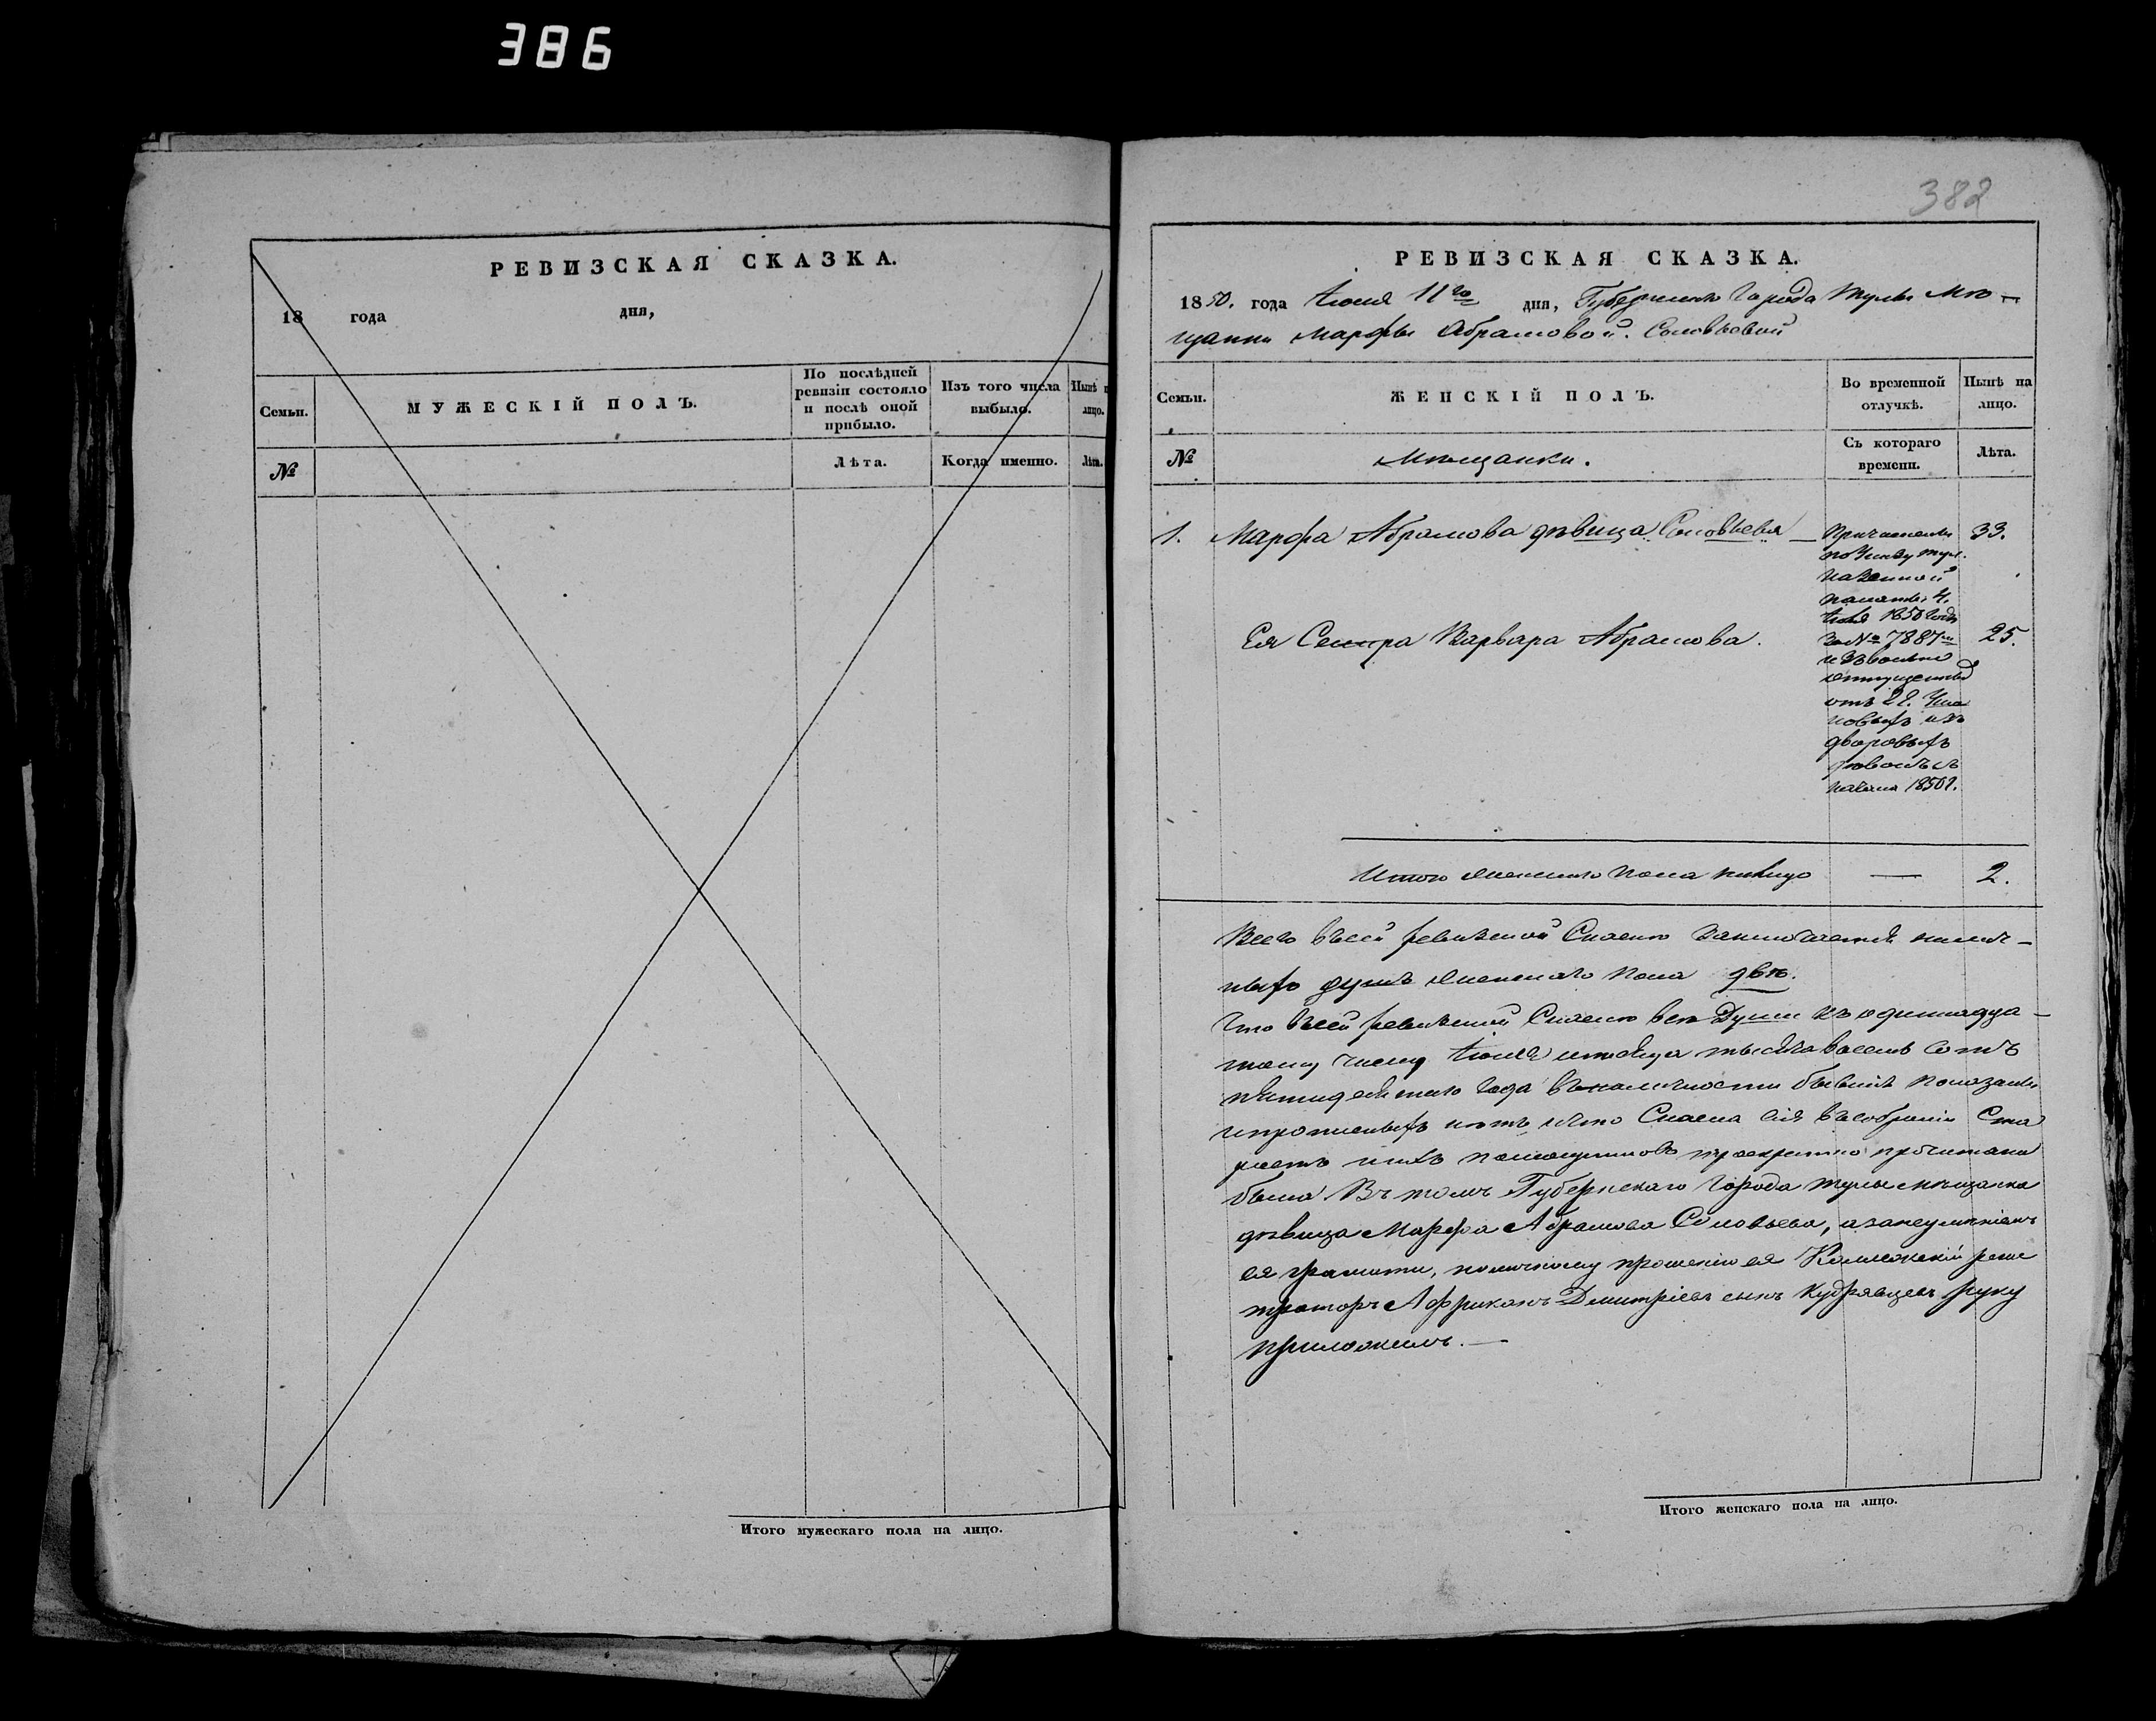 386
РЕВИЗСКАЯ СКАЗКА.
18 года дня,
Семьи.
МУЖЕСКІЙ ПОЛЪ.
По послѣдней ревизіи состояло и послѣ оной прибыло.
Изъ того числа выбыло.
Нынѣ
лицо.
№
Лѣта.
Когда именно.
Лѣта.
Итого мужескаго пола на лицо.
382
РЕВИЗСКАЯ СКАЗКА.
1850. года Іюля 11го дня, Губернскаго Города Тулы Мѣ-
щанки Марфы Абрамовой. Соловьевой
Семьи.
ЖЕНСКІЙ ПОЛЪ.
Во временной отлучкѣ.
Нынѣ на лицо.
№
Мѣщанки.
Съ котораго времени.
Лѣта.
1. Марфа Абрамова дѣвица Соловьева 33.
Причислены
по Указу тул.
казенной
палаты 4.
Іюля 1850 года
за № 7887м
изъ вольно
отпущенныхъ
отъ
изъ
дворовыхъ
начала 1850 г.
Ея Сестра Варвара Абрамова. 25.
Итого женскаго пола налицо — 2.
Всего въсей ревизской Сказкѣ заключается налич-
ныхъ душъ женскаго пола двѣ.
Что въсей ревизской Сказкѣ всѣ Души къ одиннадца-
тому числу Іюля мѣсяца тысяча восемь сотъ
пятидесятаго года въналичности бывшія показаны
ипрописныхъ нѣтъ ичто Сказка сія въсобраніи Ста
ростъ ихъ помощниковъ троекратно прочитана
была Въ томъ Губернскаго Города Тулы мѣщанка
дѣвица Марфа Абрамова Соловьева, азанеумѣніемъ
ея грамоти, поличному прошенію ея Коллежскій реги
страторъ Африканъ Дмитріевъ сынъ Кудрявцевъ руку
приложилъ.—
Итого женскаго пола на лицо.